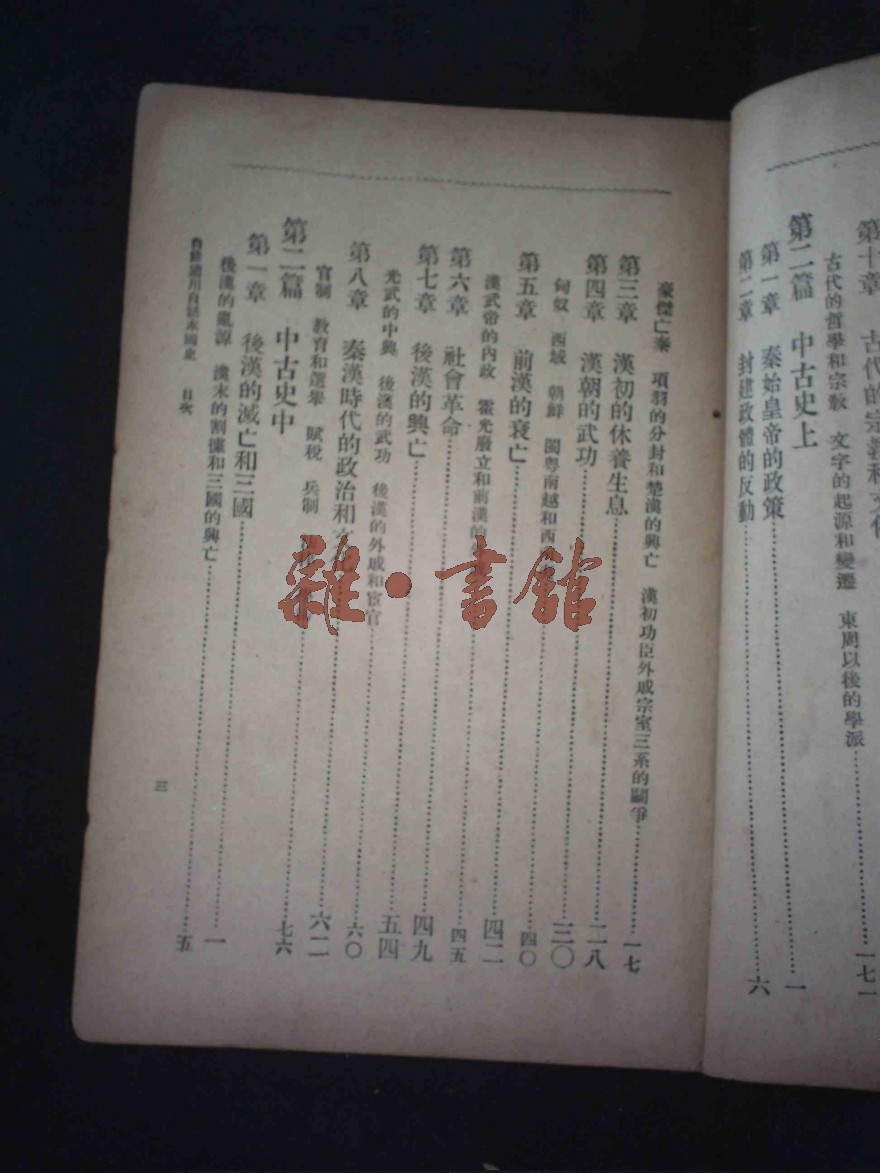 第十章 古代的宗教和文化
古代的哲學和宗教 文字的起源和變遷 東周以後的學派……一七一
第二篇 中古史上
第一章 秦始皇帝的政策……一
第二章 封建政體的反動……六
豪傑亡秦 項羽的分封和楚漢的興亡 漢初功臣外戚宗室三系的鬭爭……一七
第三章 漢初的休養生息……二八
第四章 漢朝的武功……三〇
匈奴 西域 朝鮮 閩粵南越和西南……四〇
第五章 前漢的衰亡……四二
漢武帝的內政 霍光廢立和前漢的……四五
第六章 社會革命……四九
第七章 後漢的興亡……五四
光武的中興 後漢的武功 後漢的外戚和宦官……六〇
第八章 秦漢時代的政治和文化……六二
官制 教育和選舉 賦稅 兵制……七六
第二篇 中古史中
第一章 後漢的滅亡和三國……一
後漢的亂源 漢末的割據和三國的興亡……五
自修適用白話本國史 目次
三
雜·書館